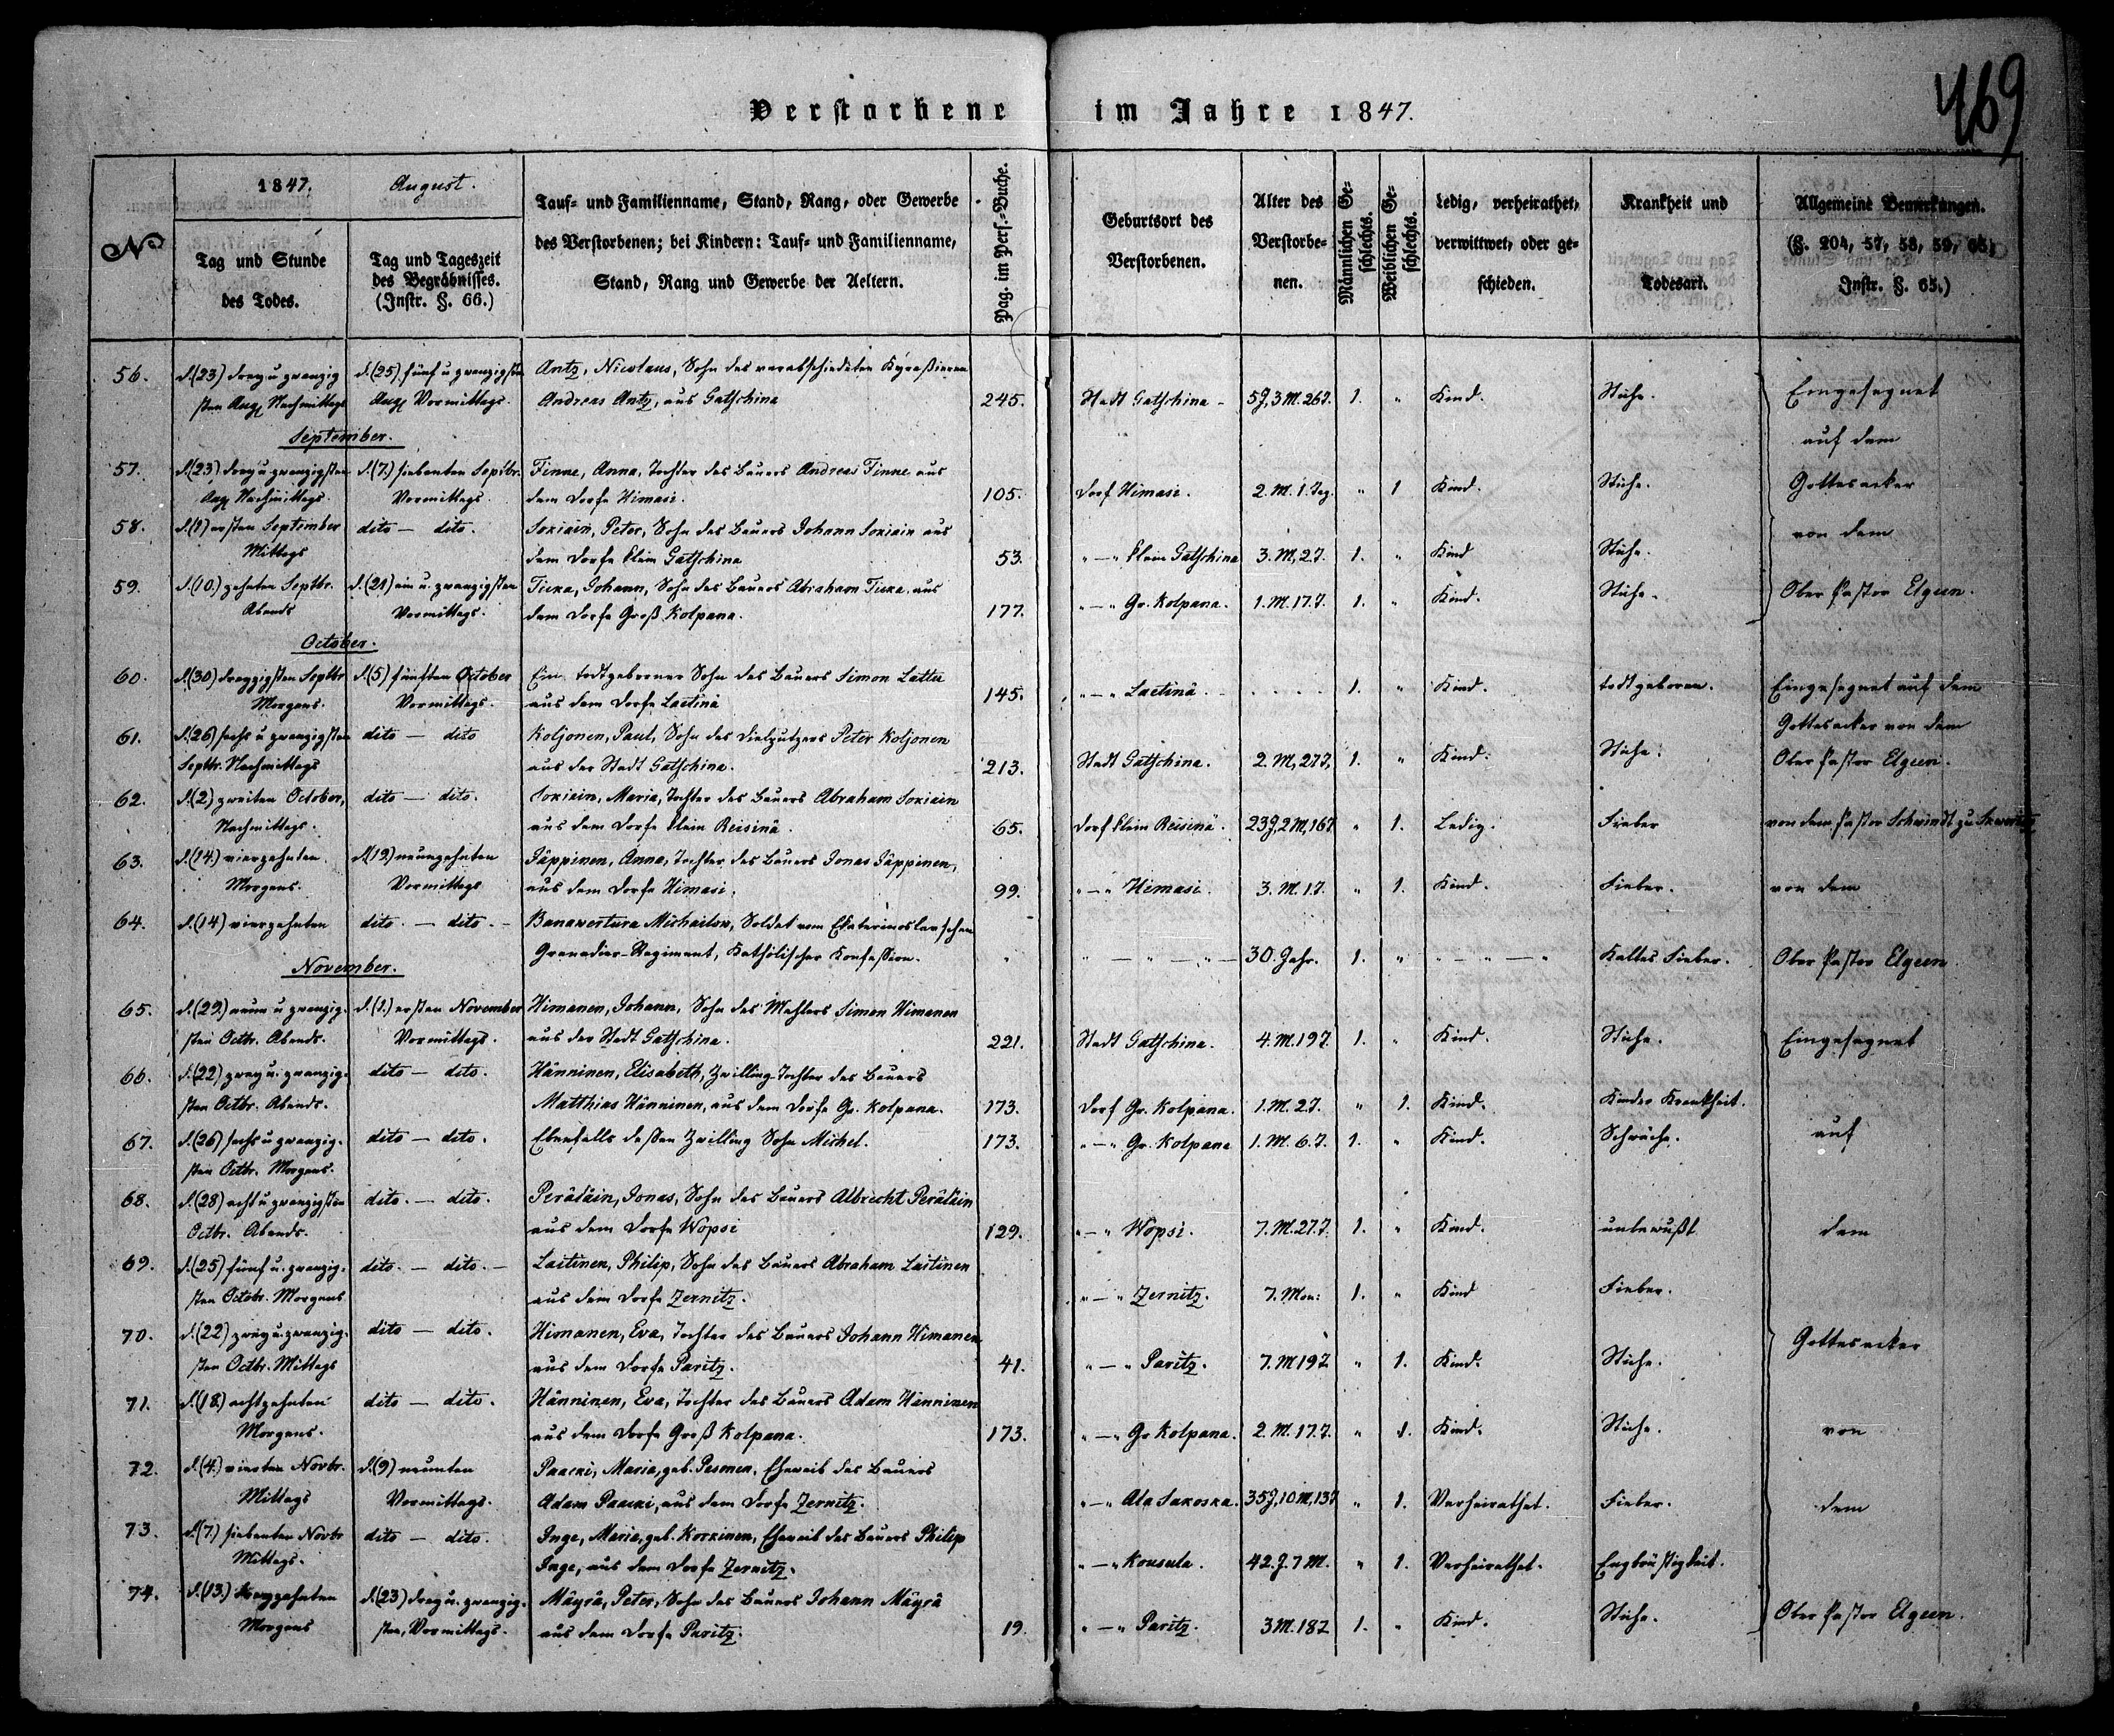 469
Verstorbene im Jahre 1847.
No
1847. August.
Tag und Stunde des Todes.
Tag und Tageszeit des Begräbnisses. (Instr. §. 66.)
Tauf- und Familienname, Stand, Rang, oder Gewerbe des Verstorbenen; bei Kindern: Tauf- und Familienname, Stand, Rang und Gewerbe der Aeltern.
Pag. im Pers.-Buche.
Geburtsort des Verstorbenen.
Alter des Verstorbenen.
Männlichen Geschlechts.
Weiblichen Geschlechts.
Ledig, verheirathet, verwittwet, oder geschieden.
Krankheit und Todesart.
Allgemeine Bemerkungen. (§. 204, 57, 58, 59, 65, Instr. §. 65.)
56. d.(23) drey u zwanzig d.(25) fünf u zwanzigsten Antz, Nicolaus, Sohn des verabschiedeten Kyraßieren
sten Aug. Nachmittags Aug. Vormittags. Andreas Antz, aus Gatschina 245. Stadt Gatschina - 5J, 3M. 26T. 1. " Kind. Stühe. Eingesegnet
September. auf dem
57. d.(23) drey u zwanzigsten d.(7.) siebenten Septbr. Finne, Anna, Tochter des Bauers Andreas Finne aus
Aug. Nachmittags. Vormittags. dem Dorfe Himasi. 105. Dorf Himasi. 2. M. 1. Tag. " 1 Kind. Stühe. Gottesacker
58. d.(1) ersten September dito - dito. Soxiain, Peter, Sohn des Bauers Johann Soxiain aus von dem
Mittags dem Dorfe klein Gatschina 53. " - " klein Gatschina 3. M, 2T. 1. " Kind Stühe.
59. d.(10.) zehnten Septbr. d.(21) ein u. zwanzigsten Tuxa, Johann, Sohn des Bauers Abraham Tuxa aus
Abends Vormittags. dem Dorfe Groß Kolpana. 177. " - " Gr. Kolpana. 1. M. 17. T. 1. " Kind. Stühe. Ober Pastor Elgeen.
October.
60. d.(30) dreyzigsten Septbr d.(5) fünften October Ein todtgeborner Sohn des Bauers Simon Lattu
Morgens. Vormittags. aus dem Dorfe Laetinä 145. " - " Laetinä. - . . . . 1. " Kind. todtgeboren. Eingesegnet auf dem
61. d.(26) sechs u zwanzigsten dito - dito Koljonen, Paul, Sohn des Dielputzers Peter Koljonen Gottesacker von dem
Septbr. Nachmittags aus der Stadt Gatschina. 213. Stadt Gatschina. 2. M, 27T, 1. " Kind. Stühe. Ober Pastor Elgeen.
62. d.(2) zweiten October, dito - dito. Soxiain, Maria, Tochter des Bauers Abraham Soxiain
Nachmittags. aus dem Dorfe klein Reisinä. 65. Dorf klein Reisinä. 23J, 2M, 16T. " 1. Ledig. Fieber von dem Pastor Schwindt zu Skworitz
63. d.(14.) vierzehnten d.(19) neunzehnten Jäppinen, Anna, Tochter des Bauers Jonas Jäppinen,
Morgens. Vormittags aus dem Dorfe Himasi. 99. " - " Himasi. 3. M. 1T. " 1. Kind. Fieber. von dem
64. d.(14) vierzehnten dito. - dito. - Banaventura Michailow, Soldat vom Ekaterinoslavschen
Grenadier-Regiment, Katholischer Konfession. " " - " - " - 30. Jahr. 1. " " - " - " Kaltes Fieber. Ober Pastor Elgeen
November.
65. d.(29) neun u zwanzig- d.(1.) ersten November Himanen, Johann, Sohn des Mahlers Simon Himanen
sten Octbr. Abends. Vormittags. aus der Stadt Gatschina. 221. Stadt Gatschina. 4. M. 19T. 1. " Kind. Stühe. Eingesegnet
66. d.(22) zwey u. zwanzig- dito - dito. Hänninen, Elisabeth, Zwilling-Tochter des Bauers
sten Octbr. Abends. Matthias Hänninen, aus dem Dorfe Gr. Kolpana. 173. Dorf Gr. Kolpana. 1. M. 2T. " 1. Kind. Kinder Krankheit.
67. d.(26) sechs u zwanzig- dito - dito. Ebenfalls deßen Zwilling Sohn Michel. 173. " - " Gr. Kolpana 1. M. 6. T. 1. " Kind. Schwäche. auf
sten Octbr. Morgens.
68. d.(28) acht u zwanzigsten dito. - dito. Peräläin, Jonas, Sohn des Bauers Albrecht Peräläin
Octbr. Abends. aus dem Dorfe Wopsi 129. " - " Wopsi. 7. M. 27. T. 1. " Kind. unbewußt dem
69. d.(25) fünf u. zwanzig- dito. - dito. - Laitinen, Philip, Sohn des Bauers Abraham Laitinen
sten Octobr. Morgens aus dem Dorfe Zernitz. " - " Zernitz. 7. Mon: 1. " Kind Fieber.
70. d.(22) zwey u. zwanzig- dito - dito. Himanen, Eva, Tochter des Bauers Johann Himanen
sten Octbr. Mittags aus dem Dorfe Paritz. 41. " - " Paritz. 7. M 19T " 1. Kind. Stühe. Gottesacker
71. d.(18.) achtzehnten dito - dito. Hänninen, Eva, Tochter des Bauers Adam Hänninen
Morgens. aus dem Dorfe Groß Kolpana. 173. " - " Gr Kolpana. 2. M. 17. T. " 1. Kind. Stühe. von
72. d.(4.) vierten Novbr. d.(9) neunten Paacki, Maria, geb. Pesonen, Eheweib des Bauers
Mittags Vormittags. Adam Paacki, aus dem Dorfe Zernitz. " - " Ala Saxosxa. 35J, 10M, 13T " 1. Verheirathet. Fieber. dem
73. d.(7.) siebenten Novbr dito - dito. Inge, Maria, geb. Korxinen, Eheweib des Bauers Philip
Mittags. Inge, aus dem Dorfe Zernitz. " - " Kousula. 42. J. 7 M. " 1. Verheirathet. Engbrüstigkeit.
74. d.(13.) dreyzehnten d.(23) drey u. zwanzig- Mäyrä, Peter, Sohn des Bauers Johann Mäyrä
Morgens sten, Vormittags. aus dem Dorfe Paritz. 19. " - " Paritz. 3M. 18T 1. " Kind. Stühe. Ober Pastor Elgeen.